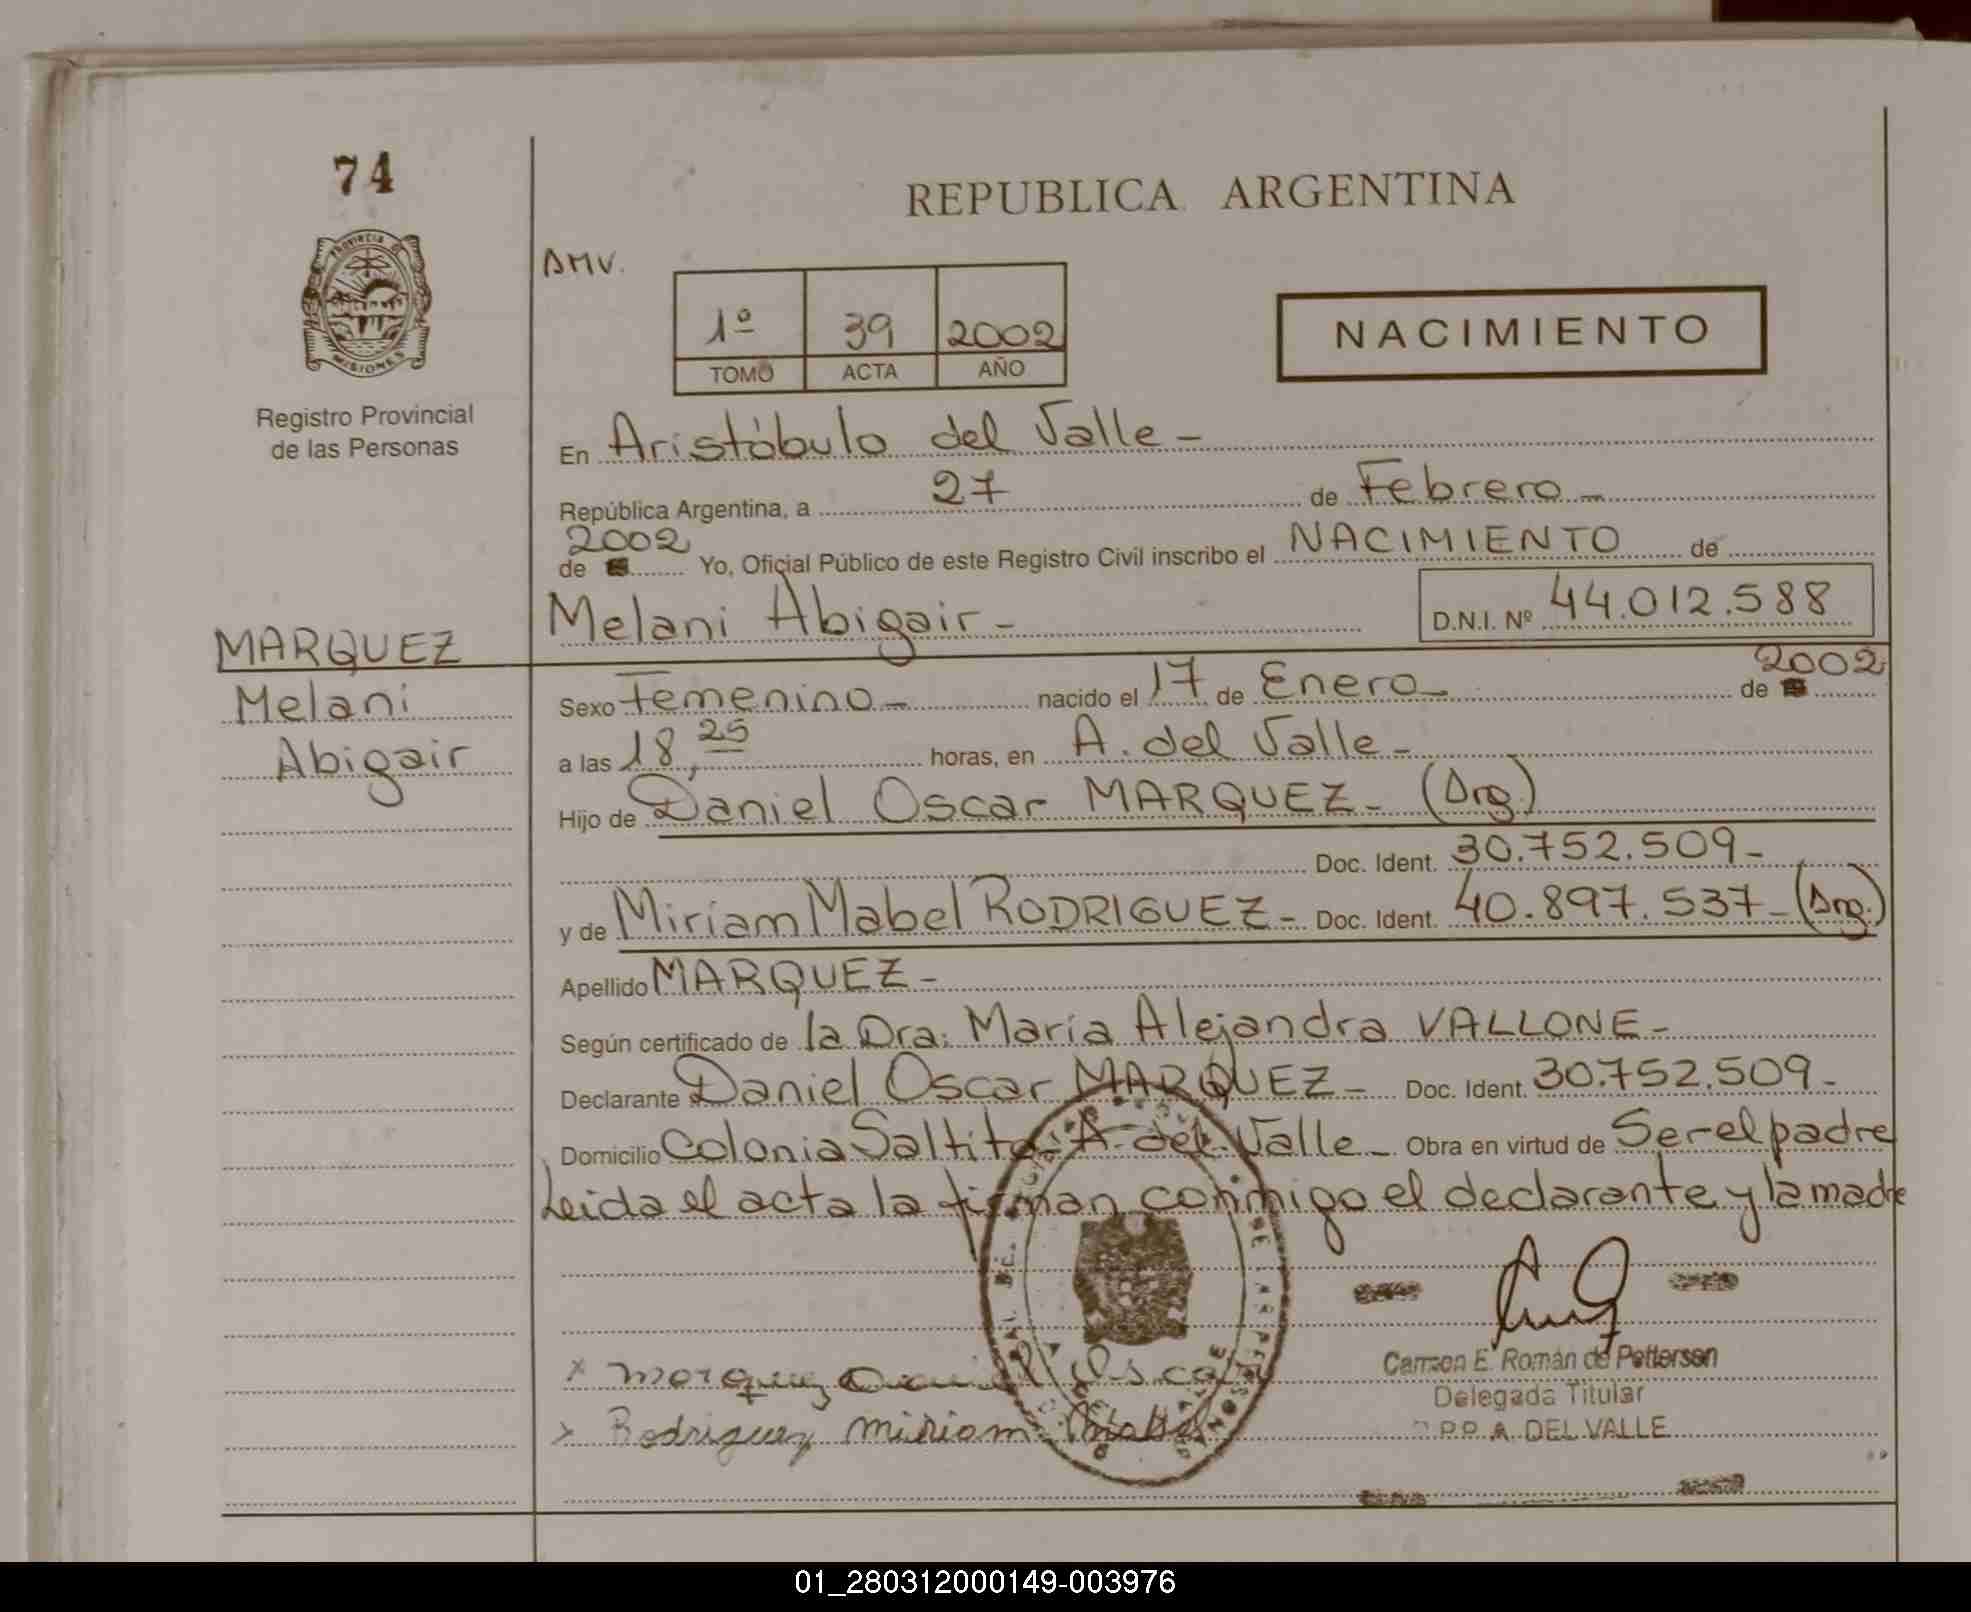 74
REPUBLICA ARGENTINA
PROVINCIA D
MISIONES
Registro Provincial
de las Personas
DMV.
1º 39 2002
TOMO ACTA AÑO
NACIMIENTO
En Aristóbulo del Valle -
República Argentina, a 27 de Febrero -
2002
de Yo, Oficial Público de este Registro Civil inscribo el NACIMIENTO de
Melani Abigair - D.N.I. Nº 44.012.588
MARQUEZ
Melani
Abigair
Sexo Femenino - nacido el 17 de Enero - de 2002
a las 18,25 horas, en A. del Valle -
Hijo de Daniel Oscar MARQUEZ - (Arg.)
Doc. Ident. 30.752.509 -
y de Miriam Mabel RODRIGUEZ - Doc. Ident. 40.897.537 - (Arg.)
Apellido MARQUEZ -
Según certificado de la Dra: María Alejandra VALLONE -
Declarante Daniel Oscar MARQUEZ - Doc. Ident. 30.752.509 -
Domicilio Colonia Saltito A. del Valle - Obra en virtud de Ser el padre
Leida el acta la firman conmigo el declarante y la madre
x marquez Oscar
Carmen E. Román de Pettersen
Delegada Titular
x Rodriguez miriam mabel
R.P.P. A. DEL VALLE
01_280312000149-003976